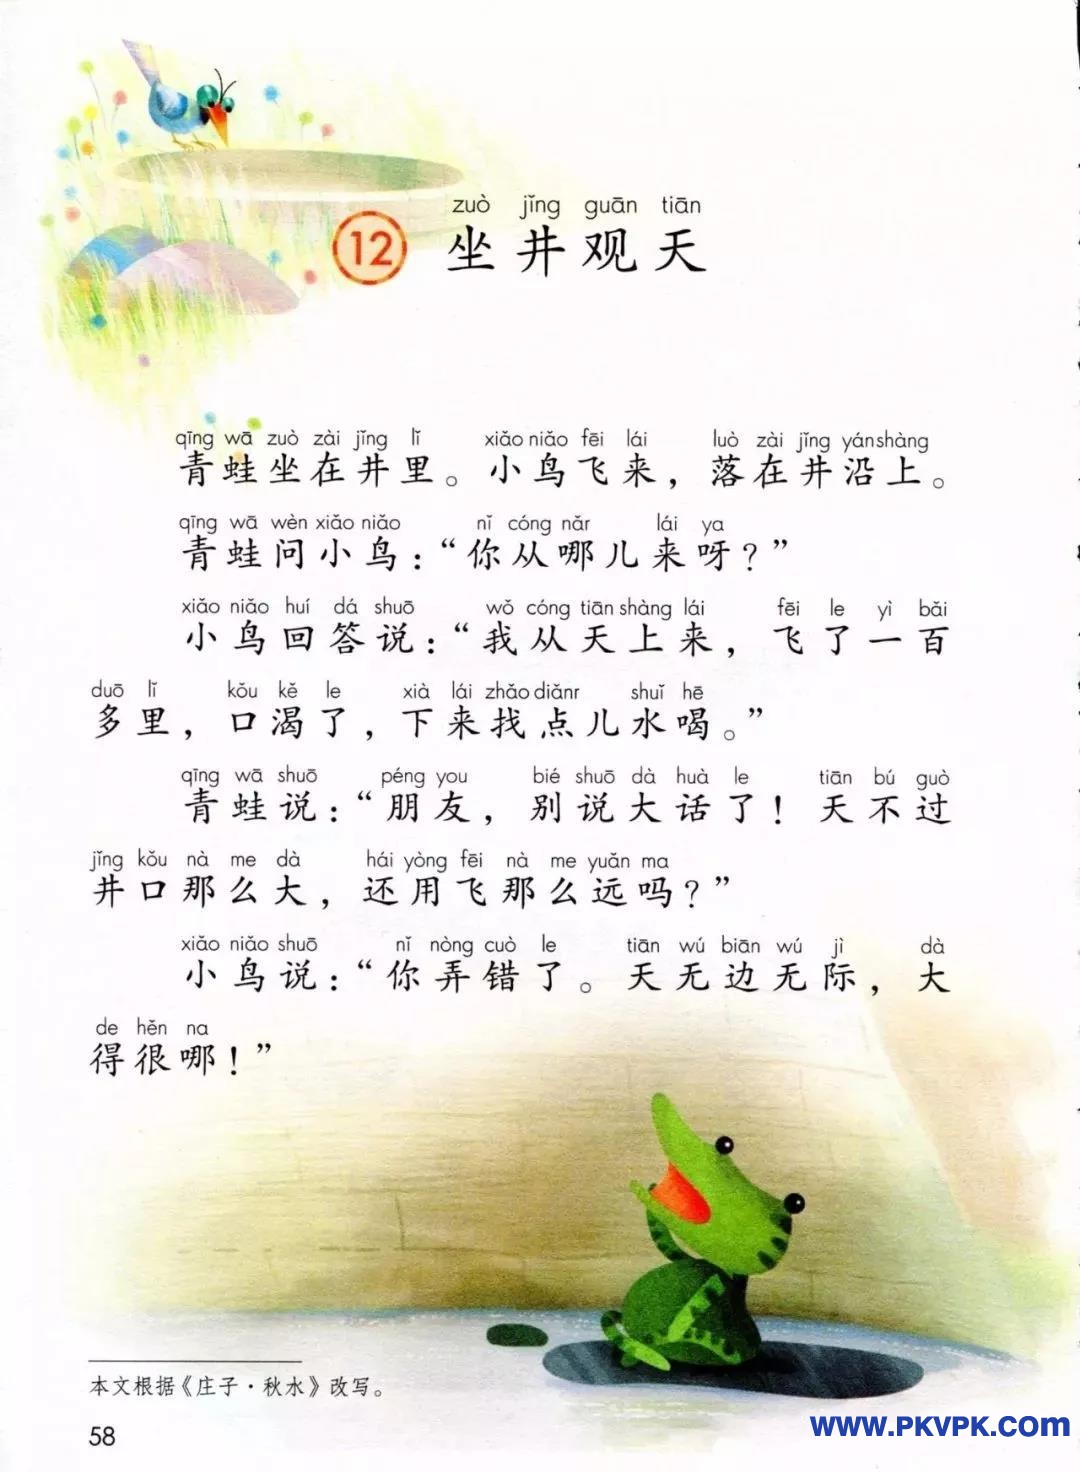 zuò jǐng guān tiān
12 坐井观天
qīng wā zuò zài jǐng lǐ xiǎo niǎo fēi lái luò zài jǐng yán shàng
青蛙坐在井里。小鸟飞来，落在井沿上。
qīng wā wèn xiǎo niǎo nǐ cóng nǎr lái ya
青蛙问小鸟：“你从哪儿来呀？”
xiǎo niǎo huí dá shuō wǒ cóng tiān shàng lái fēi le yì bǎi
小鸟回答说：“我从天上来，飞了一百
duō lǐ kǒu kě le xià lái zhǎo diǎnr shuǐ hē
多里，口渴了，下来找点儿水喝。”
qīng wā shuō péng you bié shuō dà huà le tiān bú guò
青蛙说：“朋友，别说大话了！天不过
jǐng kǒu nà me dà hái yòng fēi nà me yuǎn ma
井口那么大，还用飞那么远吗？”
xiǎo niǎo shuō nǐ nòng cuò le tiān wú biān wú jì dà
小鸟说：“你弄错了。天无边无际，大
de hěn na
得很哪！”
本文根据《庄子·秋水》改写。
58
www.PKVPK.com